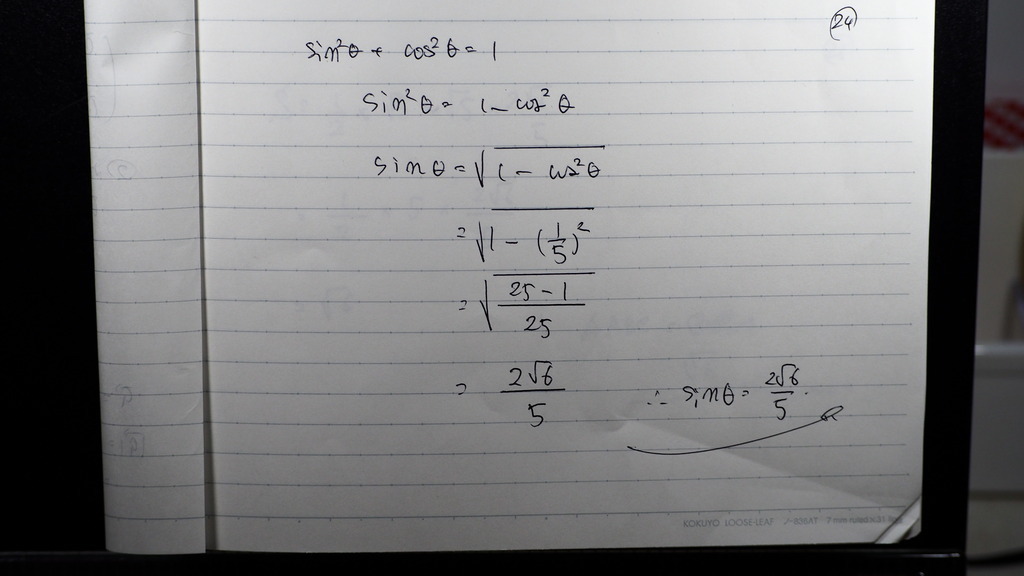 24
sin²θ + cos²θ = 1
sin²θ = 1 - cos²θ
sinθ = √(1 - cos²θ)
= √(1 - (1/5)²)
= √((25-1)/25)
= 2√6/5 ∴ sinθ = 2√6/5.
KOKUYO LOOSE-LEAF